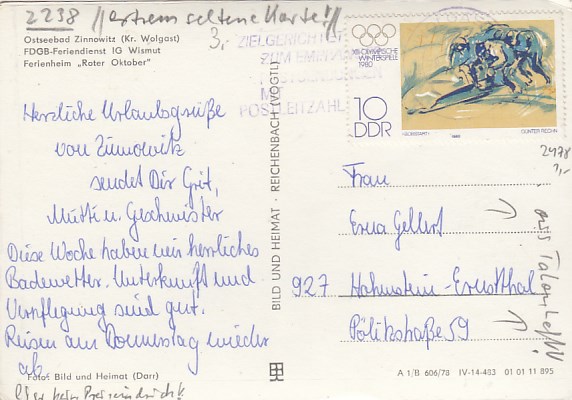 2238 //extrem seltene Karte!//
3,-
Ostseebad Zinnowitz (Kr. Wolgast)
FDGB-Feriendienst IG Wismut
Ferienheim „Roter Oktober"
ZIELGERICHTET
ZUM EMPFÄNGER
MIT
POSTLEITZAHL
XIII. OLYMPISCHE
WINTERSPIELE
1980
10
DDR
1980
Herzliche Urlaubsgrüße
von Zinnowitz
sendet Dir Grit,
Mutti u. Geschwister
Diese Woche haben wir herrliches
Badewetter. Unterkunft und
Verpflegung sind gut.
Reisen am Donnerstag wieder
ab
Foto: Bild und Heimat (Darr)
BILD UND HEIMAT · REICHENBACH (VOGTL)
2478
1,-
Frau
Erna Gellert
927 Hohenstein-Ernstthal
Pölitzstraße 59
aus
A 1/B 606/78 IV-14-483 01 01 11 895